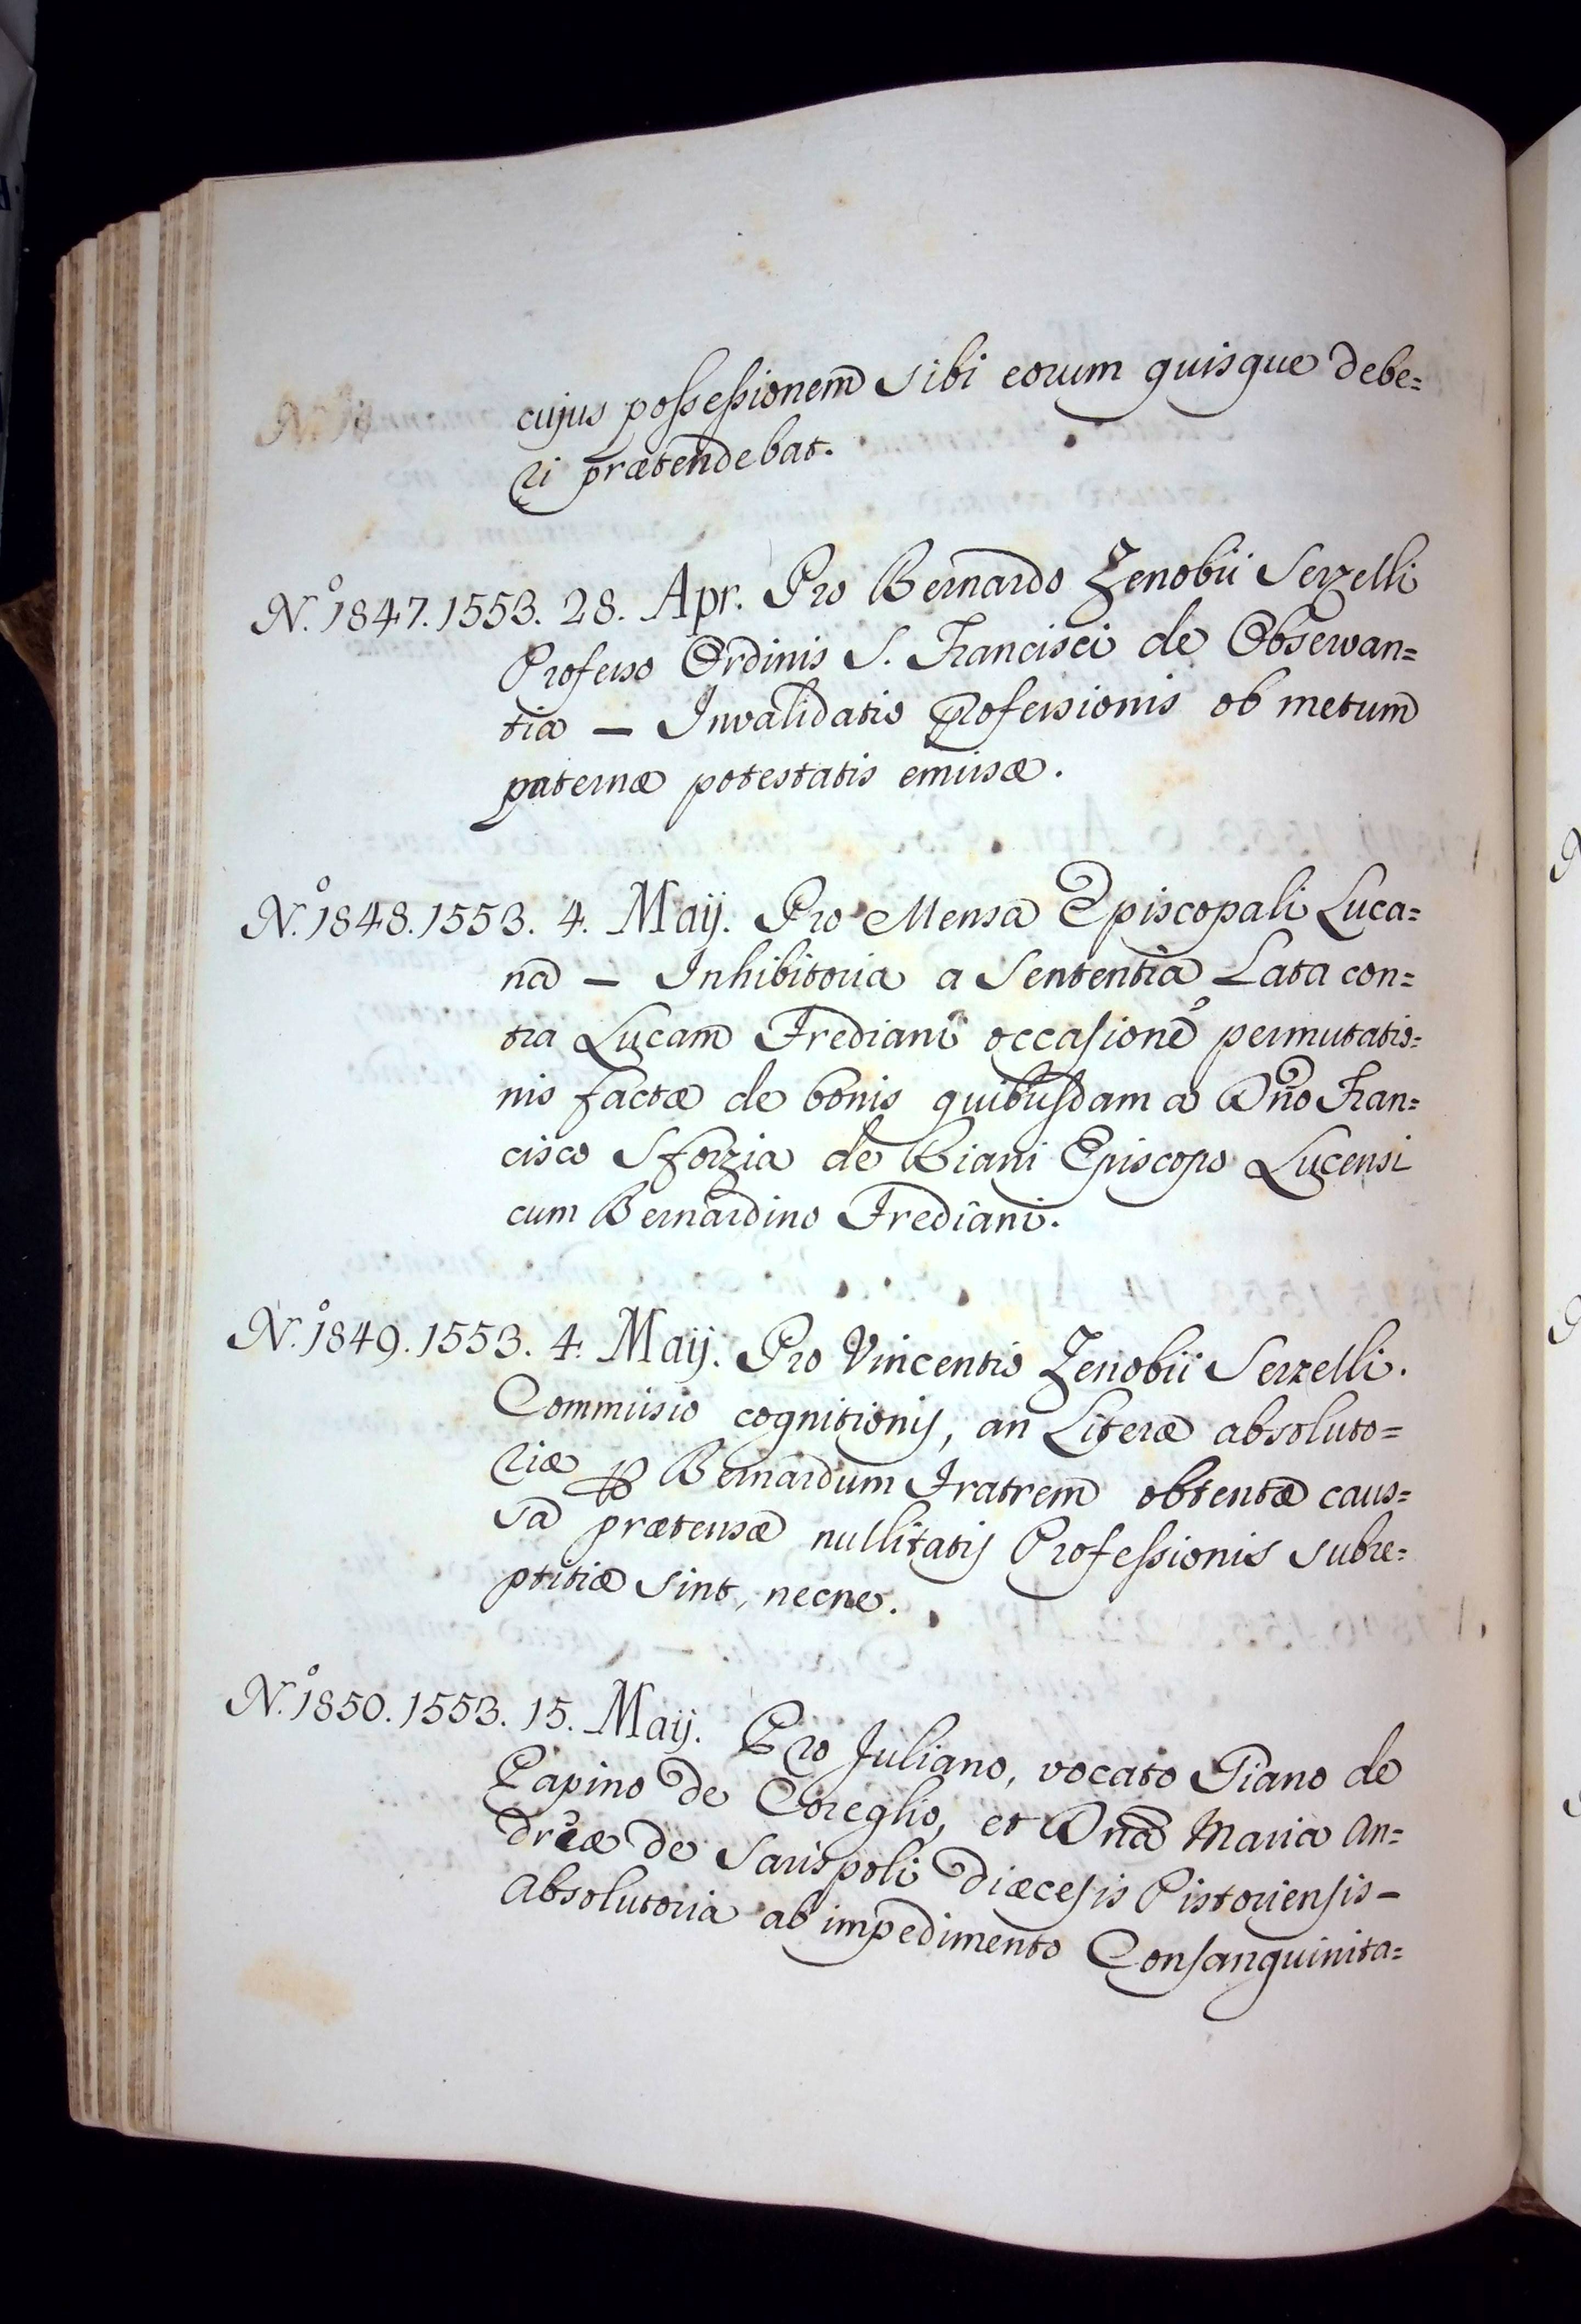 cujus possessionem sibi eorum quisque debe=
ri prætendebat.
N.º 1847. 1553. 28. Apr. Pro Bernardo Zenobii Serzelli
Professo Ordinis S. Francisci de Observan=
tia — Invalidatio Professionis ob metum
paternæ potestatis emissæ.
N.º 1848. 1553. 4. Maij. Pro Mensa Episcopali Luca=
na — Inhibitoria a Sententia Lata con=
tra Lucam Frediani occasione permutatio=
nis factæ de bonis quibusdam a Dño Fran=
cisco Sforzia de Riani Episcopo Lucensi
cum Bernardino Frediani.
N.º 1849. 1553. 4. Maij. Pro Vincentio Zenobii Serzelli.
Commissio cognitionis, an Literæ absoluto=
riæ ꝑ Bernardum Fratrem obtentæ caus=
sa prætensæ nullitatis Professionis subre=
ptitiæ sint, necne.
N.º 1850. 1553. 15. Maij. Pro Juliano, vocato Piano de
Papino de Coreglio, et Dña Maria An=
dreæ de Sarispoli Diæcesis Pistoriensis —
Absolutoria ab impedimento Consanguinita=